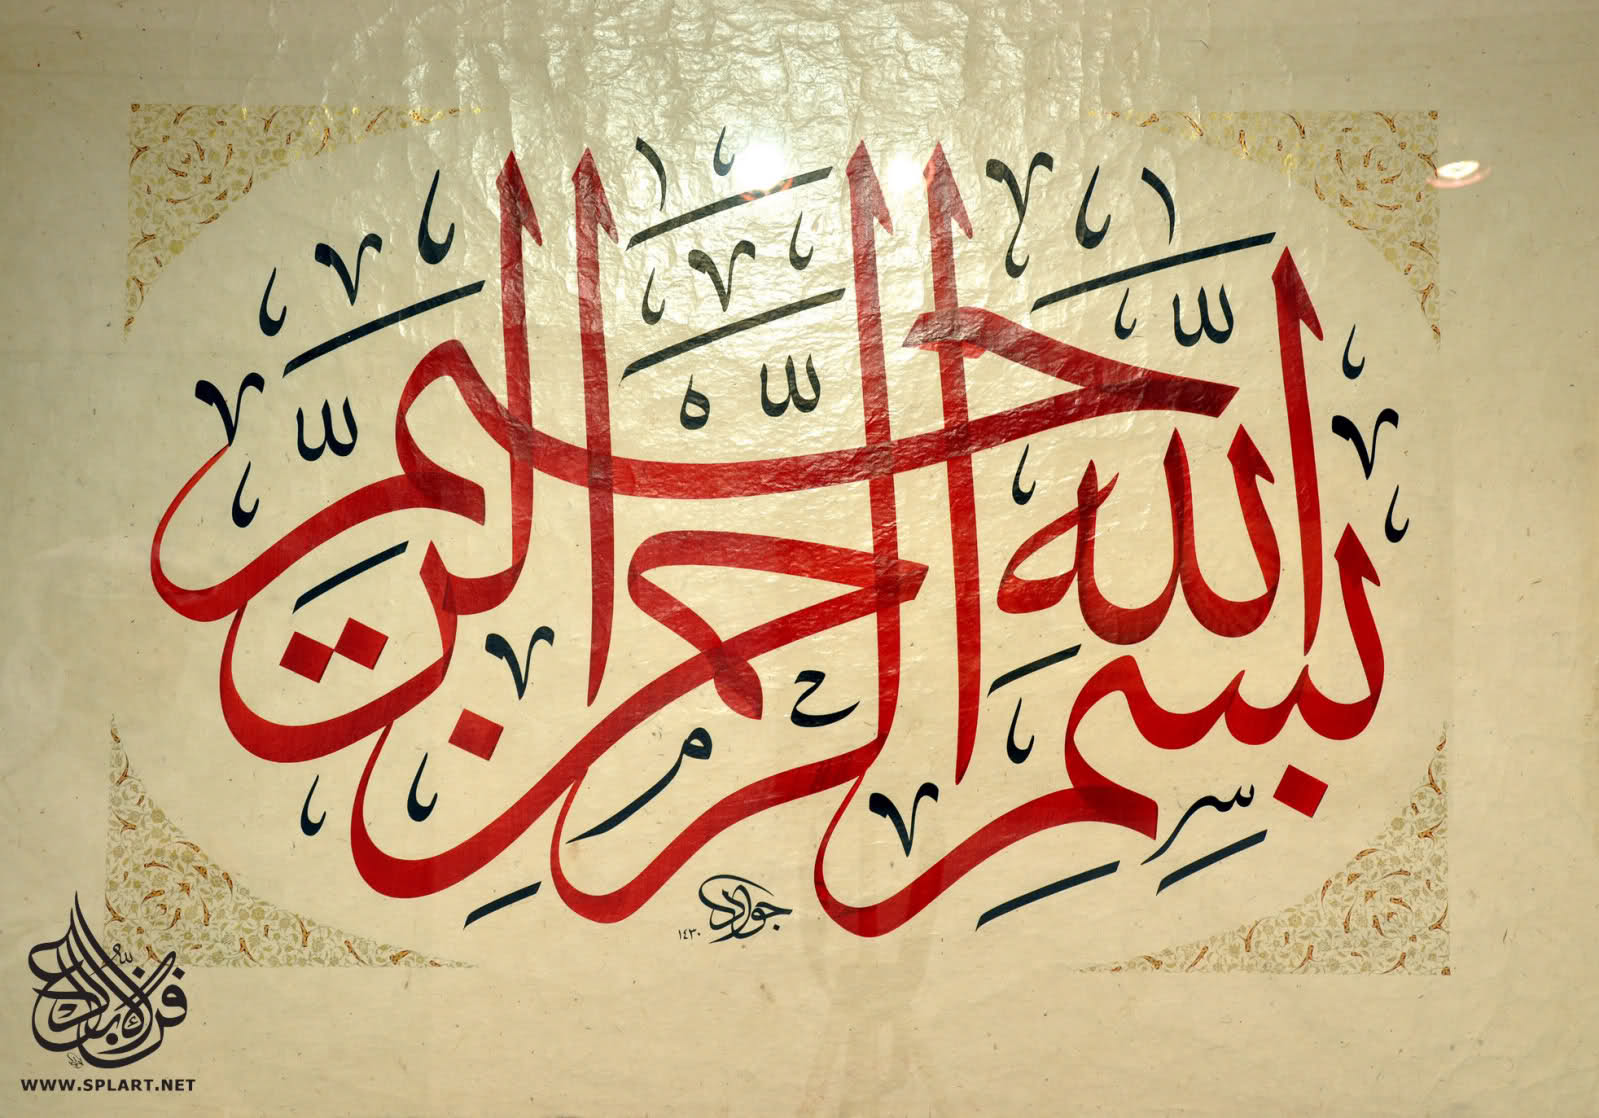 بسم الله الرحمن الرحيم
جواد
١٤٣٠
فن الإبداع
WWW.SPLART.NET